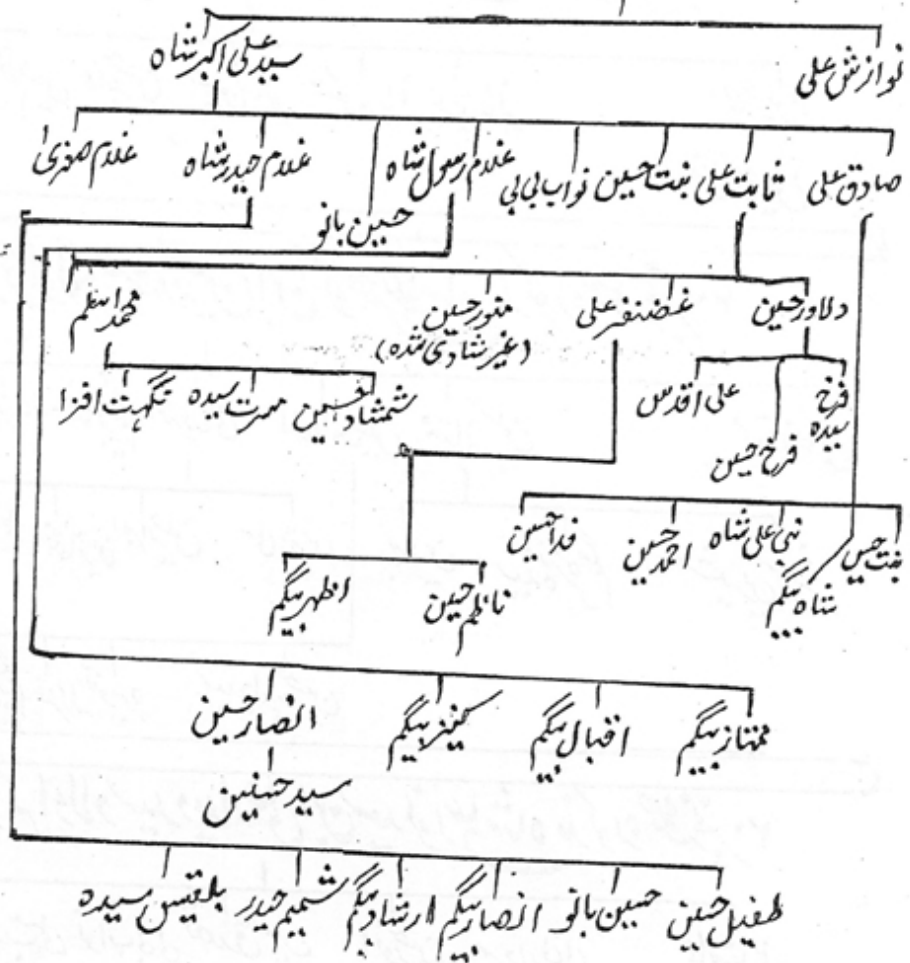 نوازش علی سید علی اکبر شاہ
صادق علی ثابت علی بنت حسین نواب بی بی غلام رسول شاہ حسین بانو غلام حیدر شاہ غلام صغریٰ
دلاور حسین غضنفر علی منور حسین محمد اسلم
(غیر شادی شدہ)
فرخ سیدہ فرخ حسین علی اقدس شمشاد حسین مسرت سیدہ نگہت افزا
بنت حسین نبی علی شاہ احمد حسین فدا حسین
شاہ بیگم
ناظم حسین اظہر بیگم
ممتاز بیگم اقبال بیگم کنیز بیگم انصار حسین
سید حسنین
طفیل حسین حسین بانو انصار بیگم ارشاد بیگم شمیم حیدر بلقیس سیدہ